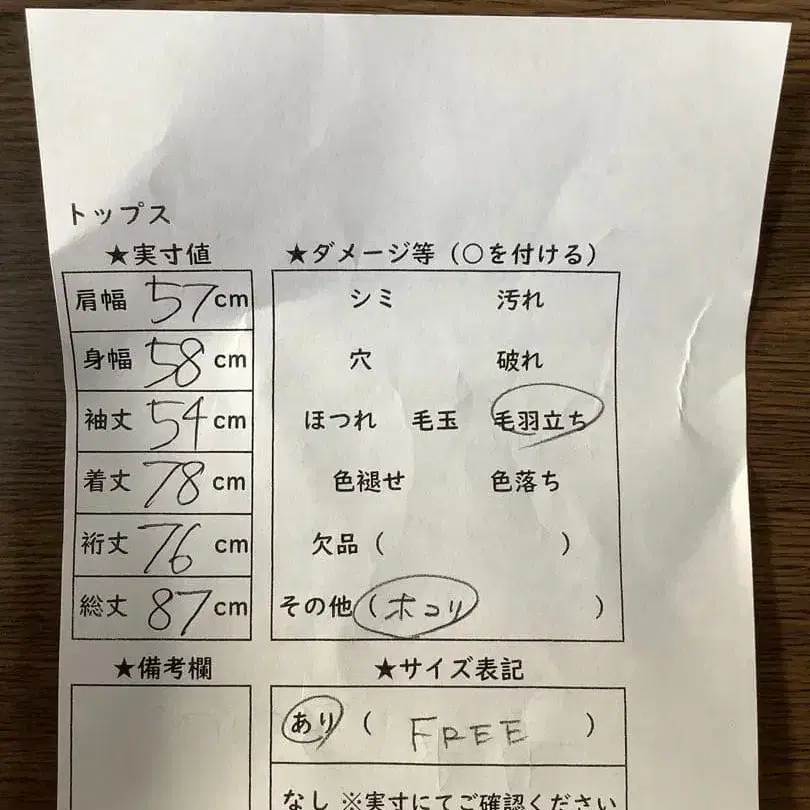 トップス
★実寸値
肩幅 57cm
身幅 58 cm
袖丈 54 cm
着丈 78 cm
裄丈 76 cm
総丈 87cm
★ダメージ等（○を付ける）
シミ 汚れ
穴 破れ
ほつれ 毛玉 毛羽立ち
色褪せ 色落ち
欠品（ ）
その他（ホコリ ）
★備考欄
★サイズ表記
あり（ FREE ）
なし ※実寸にてご確認ください